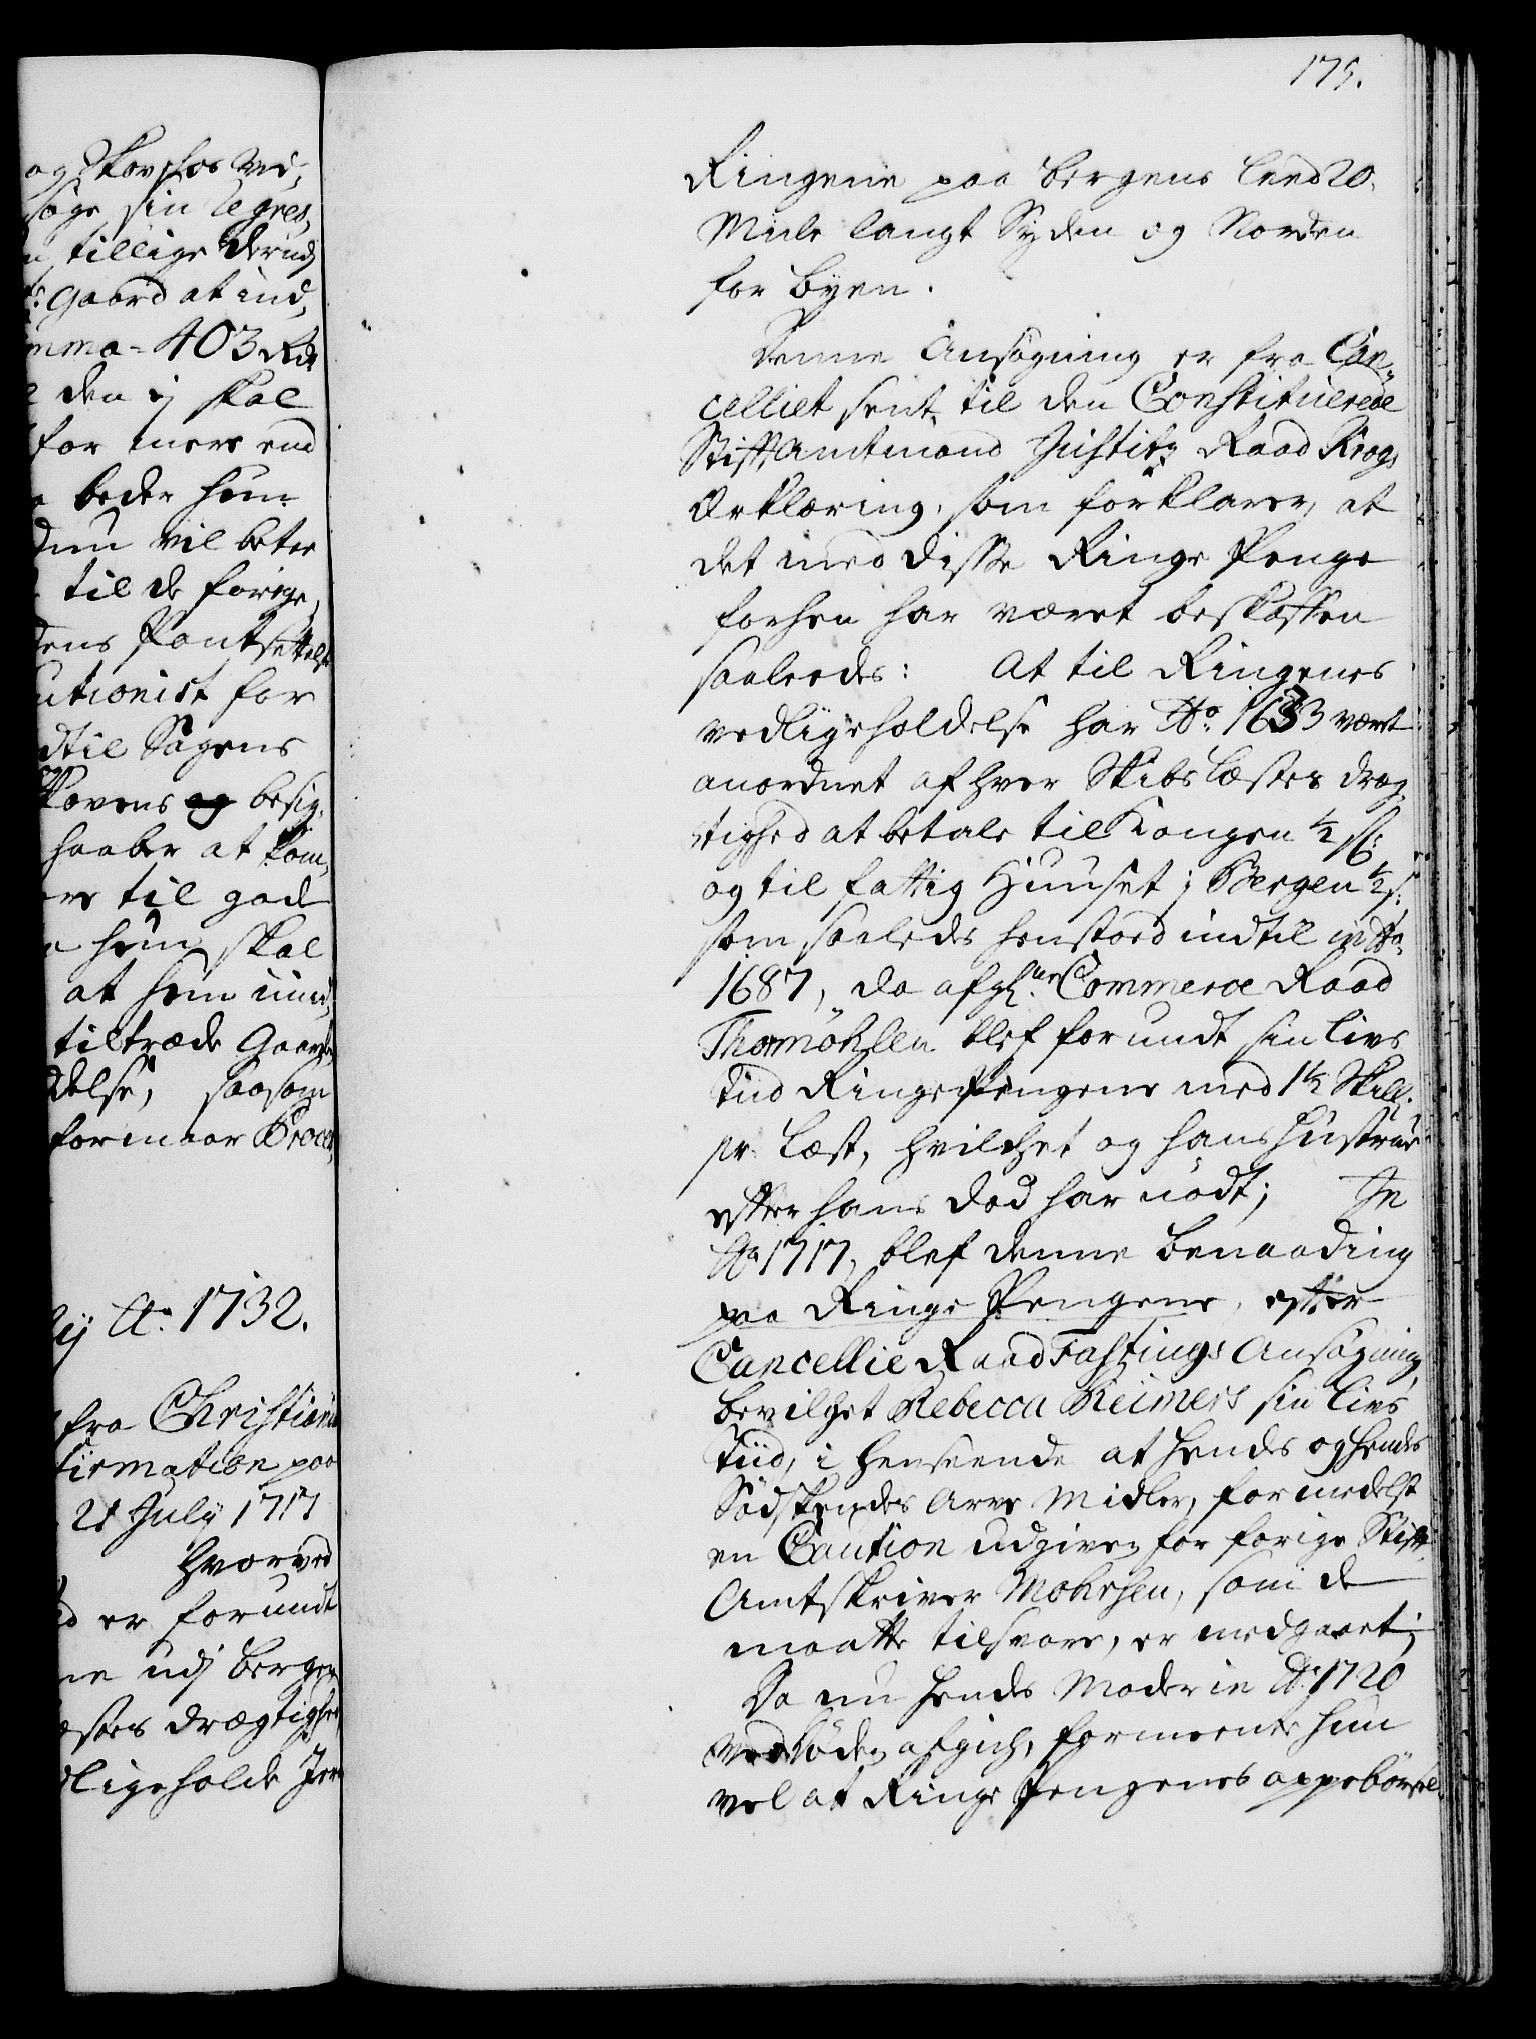 og Skov hos ved,
søge sin Regres,
tillige derud
Gaard at ind,
mma = 403 Rdr
den ej skal
for mere end
beder hun
nu vil betee
til de forige,
dens Pantsettelse
utionist for
dtil Sagens
Skovens og besig,
haaber at kom,
til god
hun skal
at hun
tiltræde Gaarden
delse, saasom
formaar Proces,
ij Ao 1732.
fra Christiania
firmation paa
21 July 1717
hvorved
er forundt
ne udj Bergen
læsters drægtighed
dligeholde Jern
175.
Ringene paa Bergens Leed 20,
Miile langt Syden og Norden
for Byen.
Denne Ansøgning er fra Can,,
celliet sendt til den Constituerede
Stift Amtmand Justitz Raad Krogs
Erklæring, som forklarer, at
det med disse Ringe Penge
forhen har været beskaffen
saaleedes: At til Ringenes
vedligeholdelse har Ao: 1633 vært
anordnet af hver Skibs Læsters dræg,
tighed at betale til Kongen ½ sk:
og til fattig Huuset i Bergen ½ s:
som saaledes henstoed indtil in Ao
1687, da afgne: Commerce Raad
Thormöhlen blef forundt sin Livs
Tiid Ringe Pengene med 1½ Skill.
pr Læst, hvilchet og hans Hustrue
efter hans død har nödt; In
Ao 1717, blef denne Benaading
paa Ringe Pengene, efter
Cancellie Raad Fastings Ansøgning
bevilget Rebecca Reimers sin Livs
Tiid, i henseende at hendes og hendes
Södskendes Arve Midler, formedelst
en Caution udgiven for forige Stift,
Amtskriver Mohrsen, som de
maatte tilsvare, er medgaaet;
Da nu hendes Moder in Ao 1720
ved döden afgich, formeente hun
vel at Ringe Pengenes oppebörsel